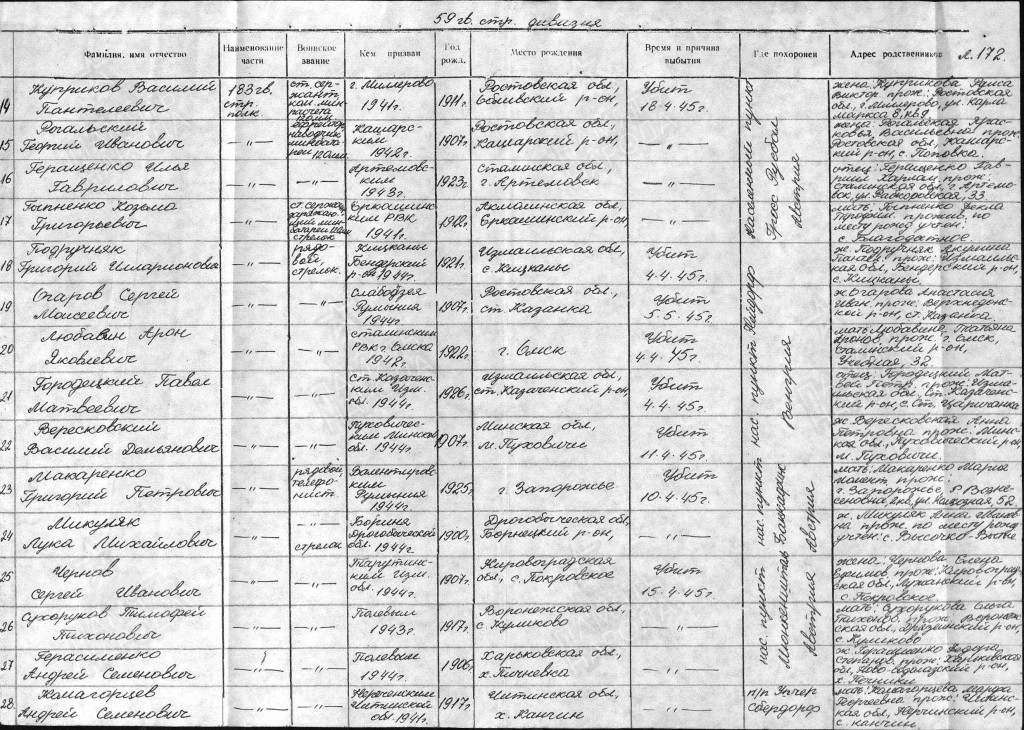 59 гв. стр. дивизия
Фамилия, имя отчество
Наименование части
Воинское звание
Кем призван
Год рожд.
Место рождения
Время и причина выбытия
Где похоронен
Адрес родственников
л. 172.
14
Куприков Василий
Пантелеевич
183 гв.
стр.
полк
ст. сер-
жант,
ком. мин.
расчета
г. Миллерово
1941г.
1911г.
Ростовская обл,
р-он,
Убит
18.4.45г.
жена: Куприкова Раиса
Виктор. прож: Ростовская
обл, г. Миллерово, ул. Карла
Маркса 8, кв 9
15
Рогальский
Георгий Иванович
—"—
наводчик
Кашарс-
ким
1942г.
1907г.
Ростовская обл,
Кашарский р-он,
—"—
жена: Рогальская Прас-
ковья Васильевна прож:
Ростовская обл, Кашарс-
кий р-он, с. Поповка.
16
Геращенко Илья
Гаврилович
—"—
—"—
Артемовс-
ким
1943г.
1923г.
Сталинская обл,
г. Артемовск
—"—
отец: Геращенко Гав-
прож:
Сталинская обл, г. Артемо-
33
17
Гыпненко Козьма
Григорьевич
—"—
ст. сержант
стрелок
Еркашинс-
ким РВК
1941г.
1912г.
Акмалинская обл,
Еркашинский р-он,
—"—
мать: Гыпненко Фекла
прожив. по
месту рожд учтен:
с. Благодатное
Населенный пункт
Австрия
18
Подручняк
Григорий Иларионович
—"—
рядо-
вой,
стрелок.
Кицканы
Бендерский
р-он 1944г.
1921г.
Измаильская обл,
с. Кицканы
Убит
4.4.45г.
ж. Подручняк
прож: Измаильс-
кая обл, Бендерский р-он,
с. Кицканы.
19
Опаров Сергей
Моисеевич
—"—
—"—
Слабодзея
Румыния
1944г.
1907г.
Ростовская обл,
ст. Казанка
Убит
5.5.45г.
ж. Огарова Анастасия
Иван. прож: Верхнедонс-
кой р-он, ст. Казанка.
20
Любавин Арон
Яковлевич
—"—
—"—
Сталинским
РВК г. Омска
1942г.
1922г.
г. Омск
Убит
4.4.45г.
мать: Любавина Татьяна
Аронов. прож: г. Омск,
Сталинский р-он,
Учебная, 32
21
Городецкий Павел
Матвеевич
—"—
—"—
Ст. Казаченс-
ким Изм.
обл. 1944г.
1926г.
Измаильская обл,
ст. Казаченский р-он,
Убит
4.4.45г.
отец: Городецкий Мат-
вей Петр. прож: Изма-
ильская обл, Ст. Казаченс-
кий р-он, с. Ст. Царичанка
нас. пункт
Венгрия
22
Вересковский
Василий Демьянович
—"—
—"—
Пуховичес-
ким Минской
обл. 1944г.
1904г.
Минская обл,
м. Пуховичи
Убит
11.4.45г.
ж. Вересковская Анна
Петровна прож: Минс-
кая обл, Пуховический р-он,
м. Пуховичи.
23
Макаренко
Григорий Петрович
—"—
рядовой,
телефо-
нист
Валентировс-
ким
Румыния
1944г.
1925г.
г. Запорожье
Убит
10.4.45г.
мать: Макаренко Мария
прож:
г. Запорожье,
52
нас. пункт
Австрия
24
Микуляк
Лука Михайлович
—"—
стрелок
Борина
Дрогобыческой
обл. 1944г.
1900г.
Дрогобыческая обл,
Борнецкий р-он,
—"—
ж. Микуляк Анна Иванов-
на прож. по месту рожд
учтен: с. Высочко-Выжне
25
Чернов
Сергей Иванович
—"—
—"—
Тарутинс-
ким Изм.
обл. 1944г.
1907г.
Кировоградская
обл, с. Покровское
Убит
15.4.45г.
жена: Чернова Елена
Ефимов. прож: Кировоград-
ская обл, р-он,
с. Покровское.
26
Сухоруков Тимофей
Тихонович
—"—
—"—
Полевым
1943г.
1917г.
Воронежская обл,
с. Куликово
—"—
мать: Сухорукова Ольга
Тихонов. прож: Воронежс-
кая обл, р-он,
с. Куликово
27
Герасименко
Андрей Семенович
—"—
—"—
Полевым
1944г.
1906г.
Харьковская обл,
х. Пичневка
—"—
ж. Герасименко
Степанов. прож: Харьковская
обл, р-он,
нас. пункт
Австрия
28
Жамагорцев
Андрей Семенович
—"—
—"—
Нерченским
Читинской
обл. 1941г.
1917г.
Читинская обл,
х. Канчин
—"—
п/п Унчер
сбердорф
мать: Жамагорцева Марфа
Георгиевна прож: Читинс-
кая обл, Нерчинский р-он,
с. Канчин.